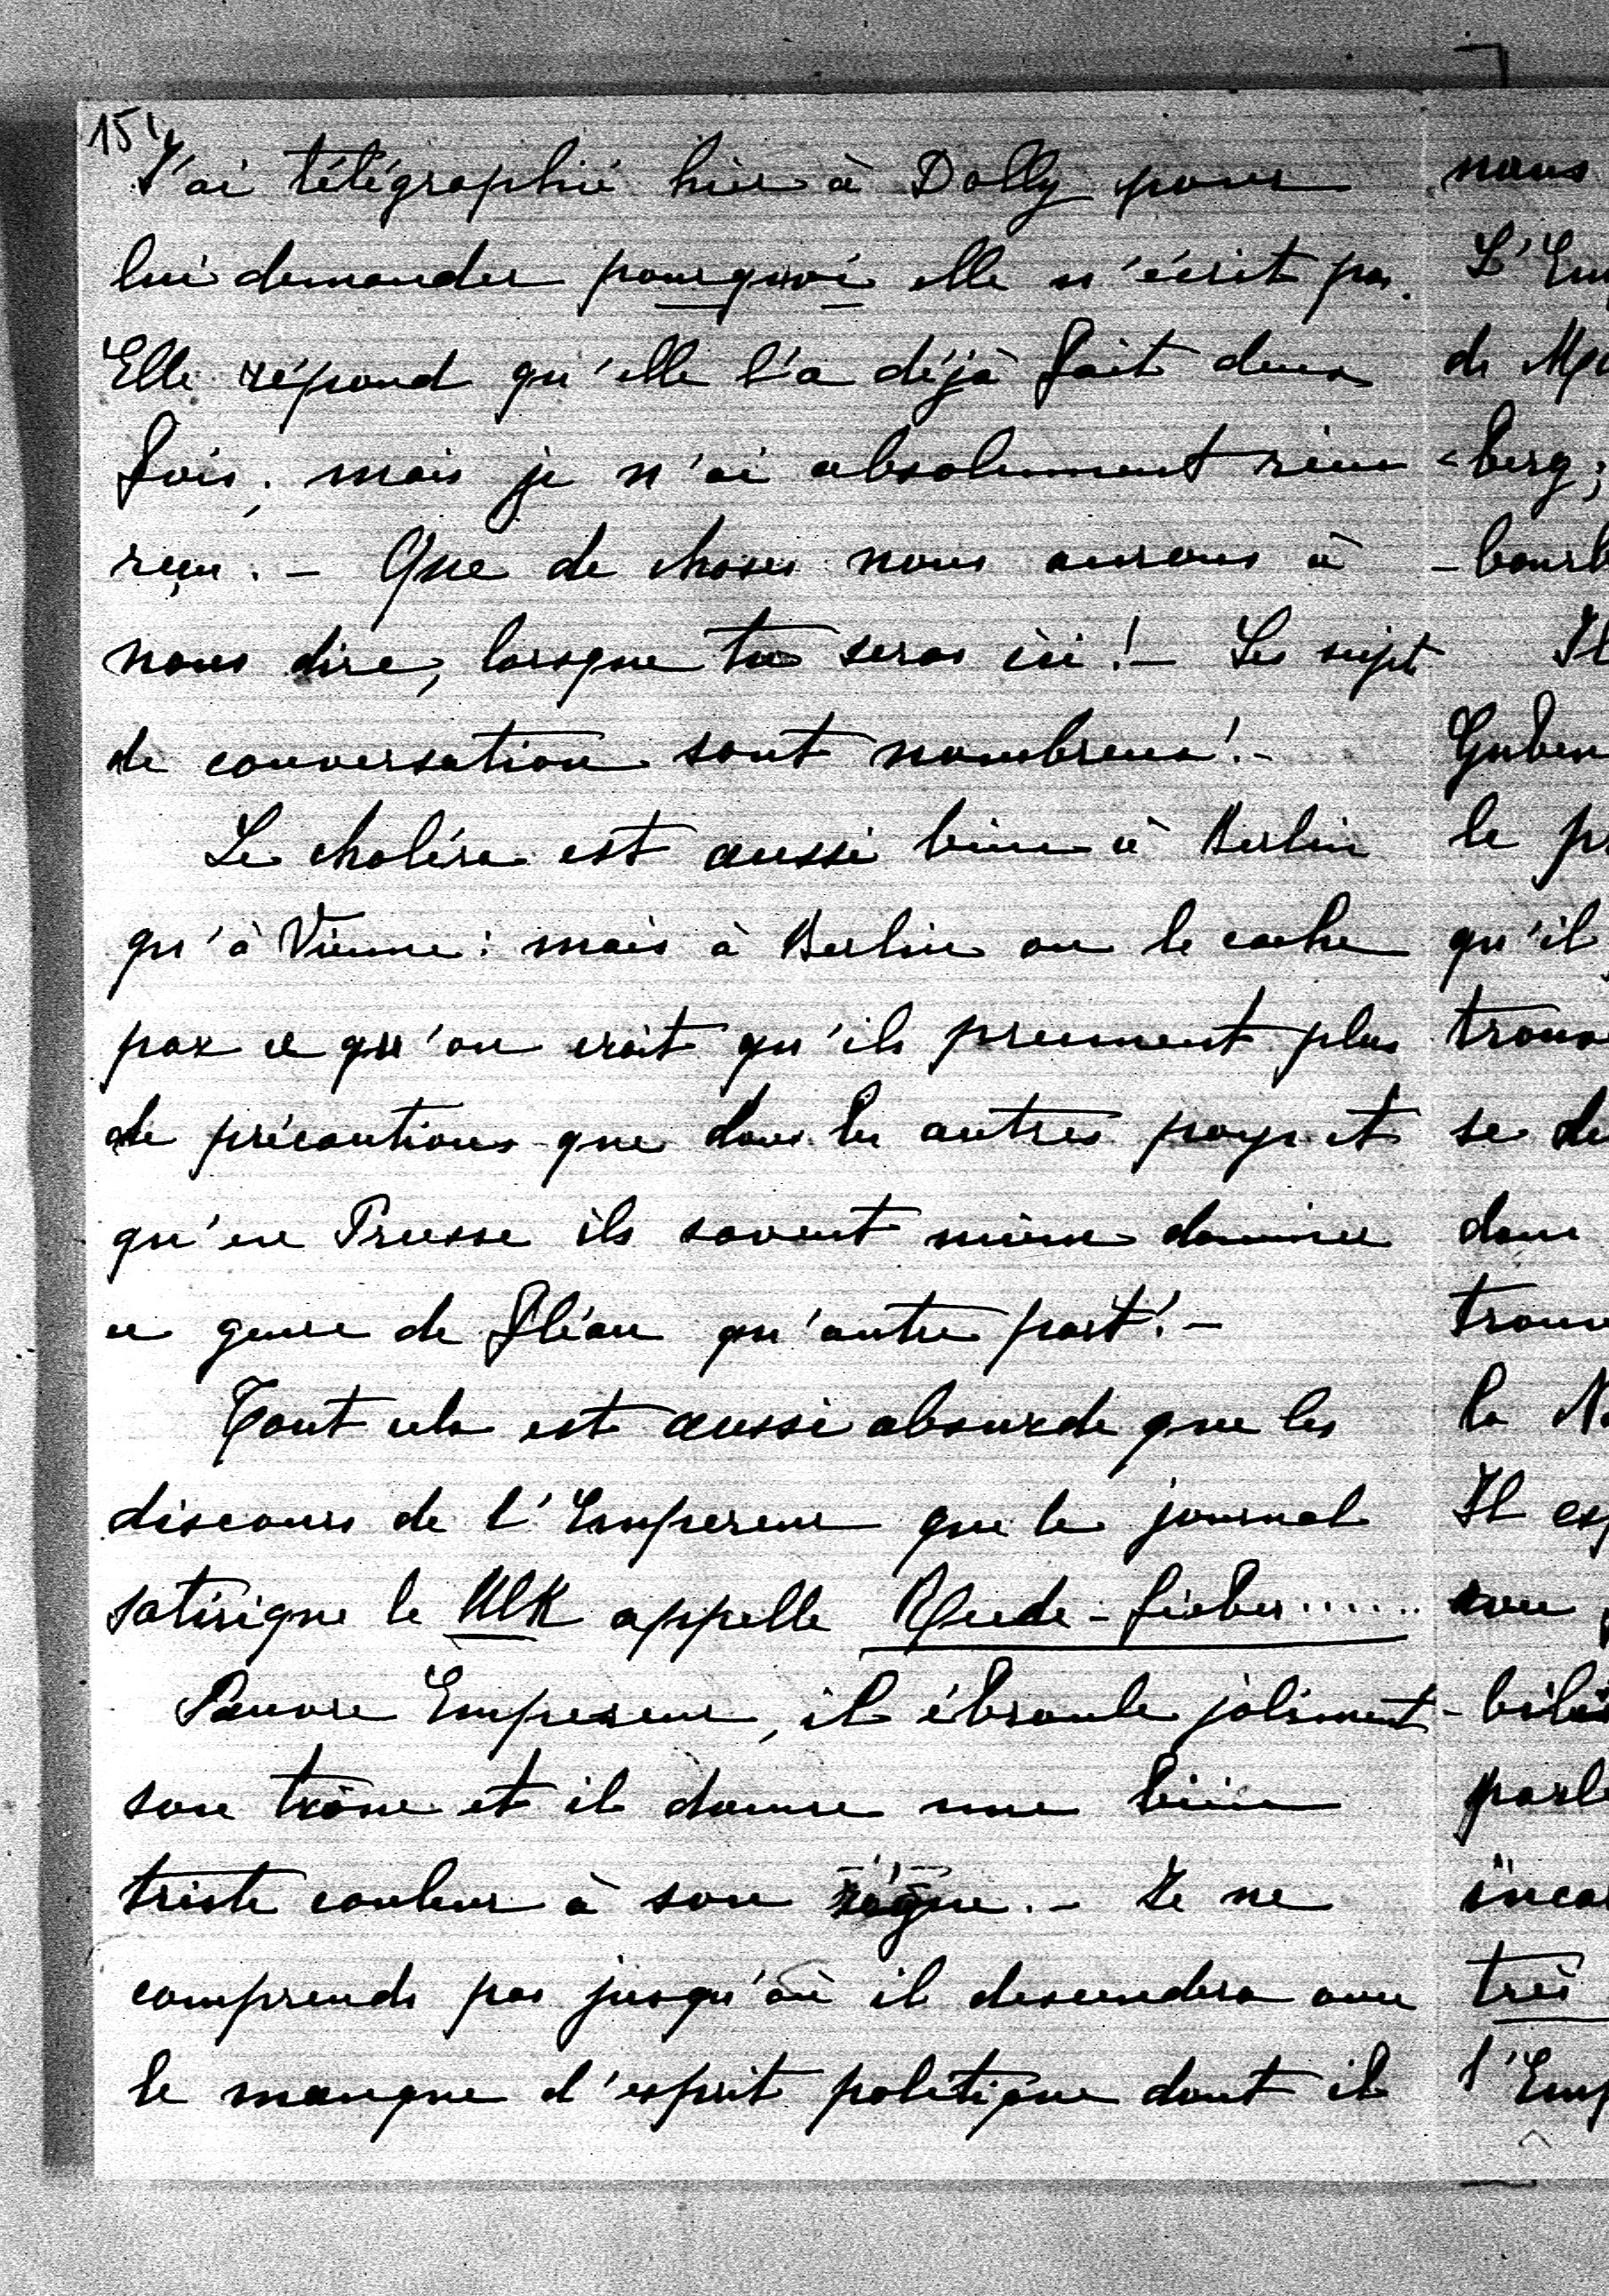 15
J'ai télégraphié hier à Dolly pour
lui demander pourquoi elle n'écrit pas.
Elle répond qu'elle l'a déjà fait deux
fois; mais je n'ai absolument rien
reçu. – Que de choses nous aurons à
nous dire, lorsque tu seras ici! – Les sujets
de conversation sont nombreux! –
Le choléra est aussi bien à Berlin
qu'à Vienne: mais à Berlin on le cache
par ce qu'on croit qu'ils prennent plus
de précautions que dans les autres pays et
qu'en Prusse ils savent mieux dominer
ce genre de fléau qu'autre part! –
Tout cela est aussi absurde que les
discours de l'Empereur que le journal
satirique le Ulk appelle Rede-fieber......
Pauvre Empereur, il ébranle joliment
son trône et il donne une bien
triste couleur à son règne. – Je ne
comprends pas jusqu'où il descendera avec
le manque d'esprit politique dont il
nous
L'Em
de
-berg;
-bourb
Il
Guben
le pr
qu'il
trouv
se de
dans
trouv
la
Il esp
avec
-bilit
parle
incar
très
l'Emp